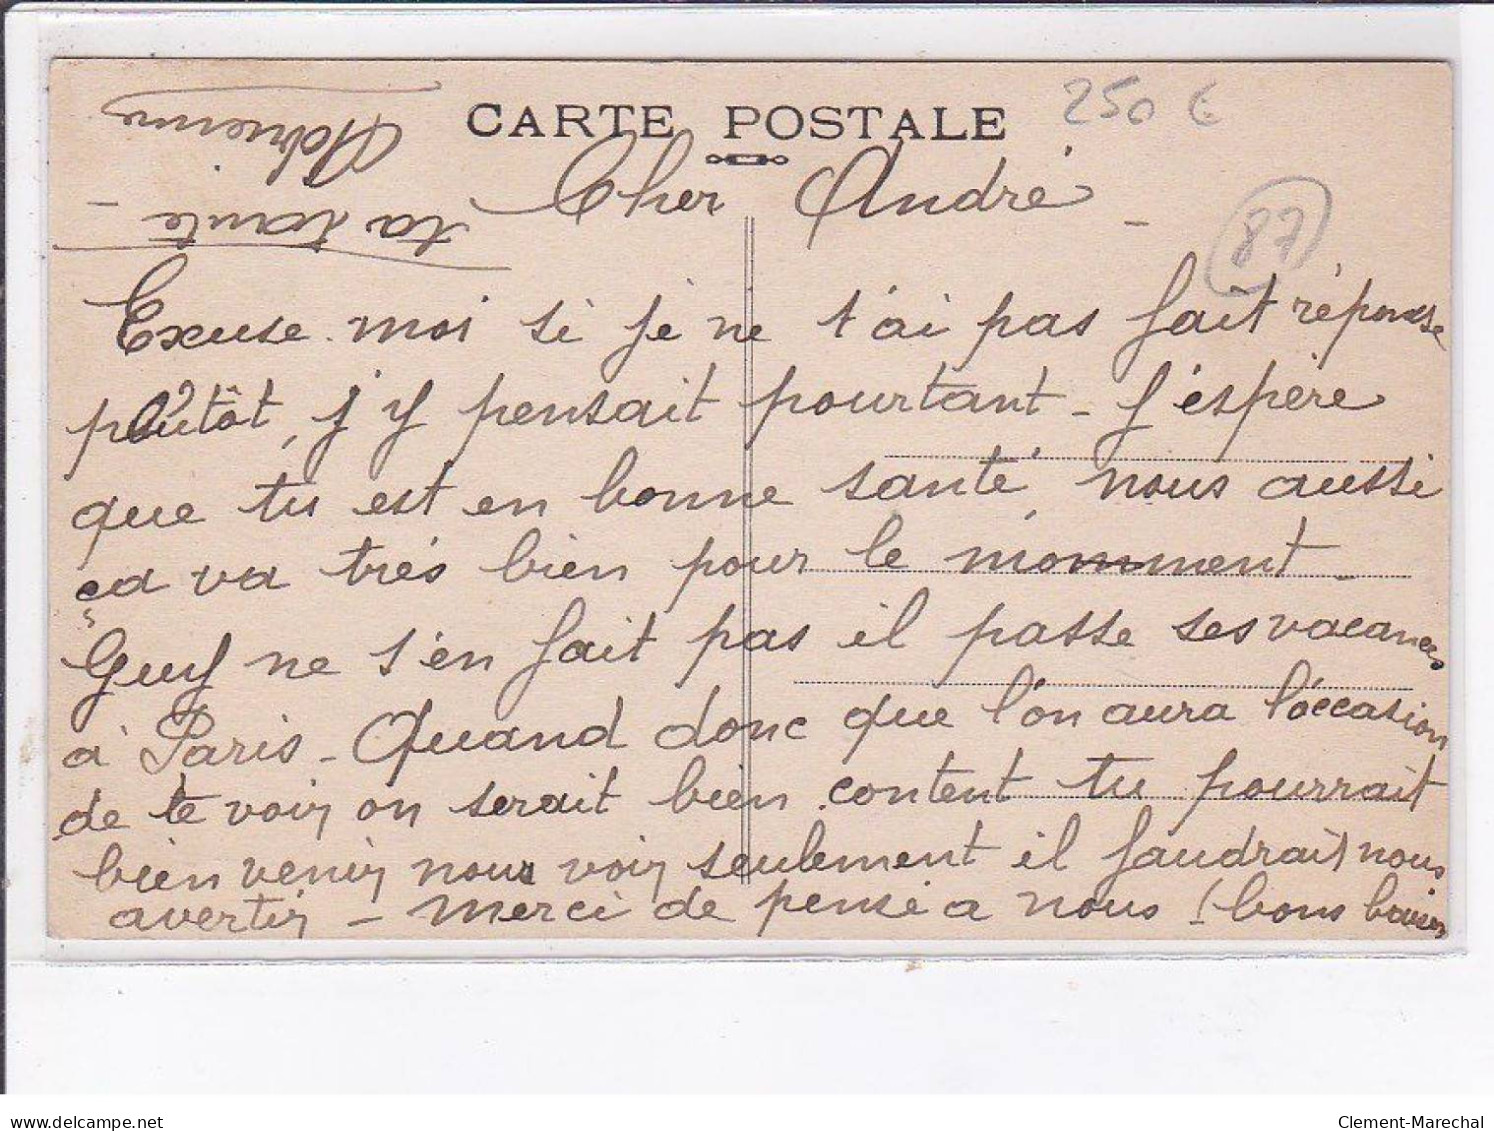 CARTE POSTALE
250 €
87
Cher André -
Excuse-moi si je ne t'ai pas fait réponse
plutôt, j'y pensait pourtant - J'espère
que tu est en bonne santé, nous aussi
ça va très bien pour le momment -
Guy ne s'en fait pas il passe ses vacances
à Paris - Quand donc que l'on aura l'occasion
de te voir on serait bien content tu pourrait
bien venir nous voir seulement il faudrait nous
avertir - Merci de pensé a nous ! bons baisers
ta tante -
delcampe.net
Clement-Marechal